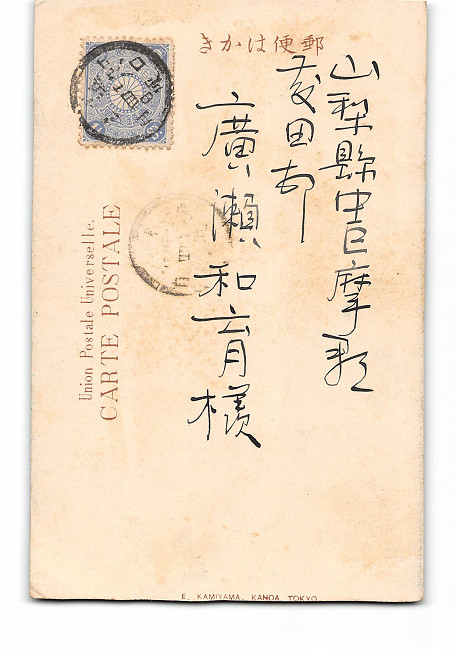 郵便はかき
山梨縣中巨摩郡
藤田村
廣瀨和育様
Union Postale Universelle.
CARTE POSTALE
E. KAMIYAMA, KANDA, TOKYO